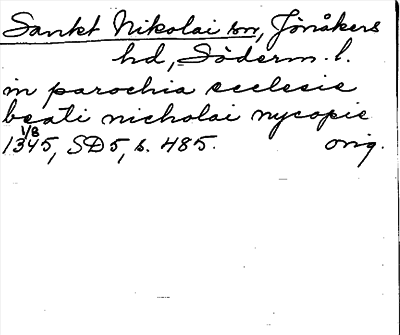 Sankt Nikolai sn, Jönåkers
hd, Söderm. l.
in parochia ecclesie
beati nicholai nycopie
1/8
1345, SD5, s. 485. orig.